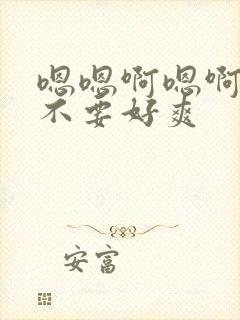 嗯嗯啊嗯啊
不要好爽
安富